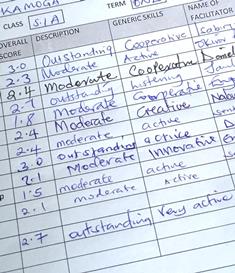 KAMOGA TERM ONE
CLASS S.1A
OVERALL SCORE DESCRIPTION GENERIC SKILLS NAME OF FACILITATOR
3.0 Outstanding Cooperative
2.3 Moderate Active
2.4 Moderate Cooperative
2.7 outstanding listening
1.8 Moderate Cooperate
2.4 Moderate Creative
2.4 moderate active
3.0 outstanding active
2.1 Moderate Innovative
1.5 moderate active
2.1 moderate Active
2.7 outstanding Very active